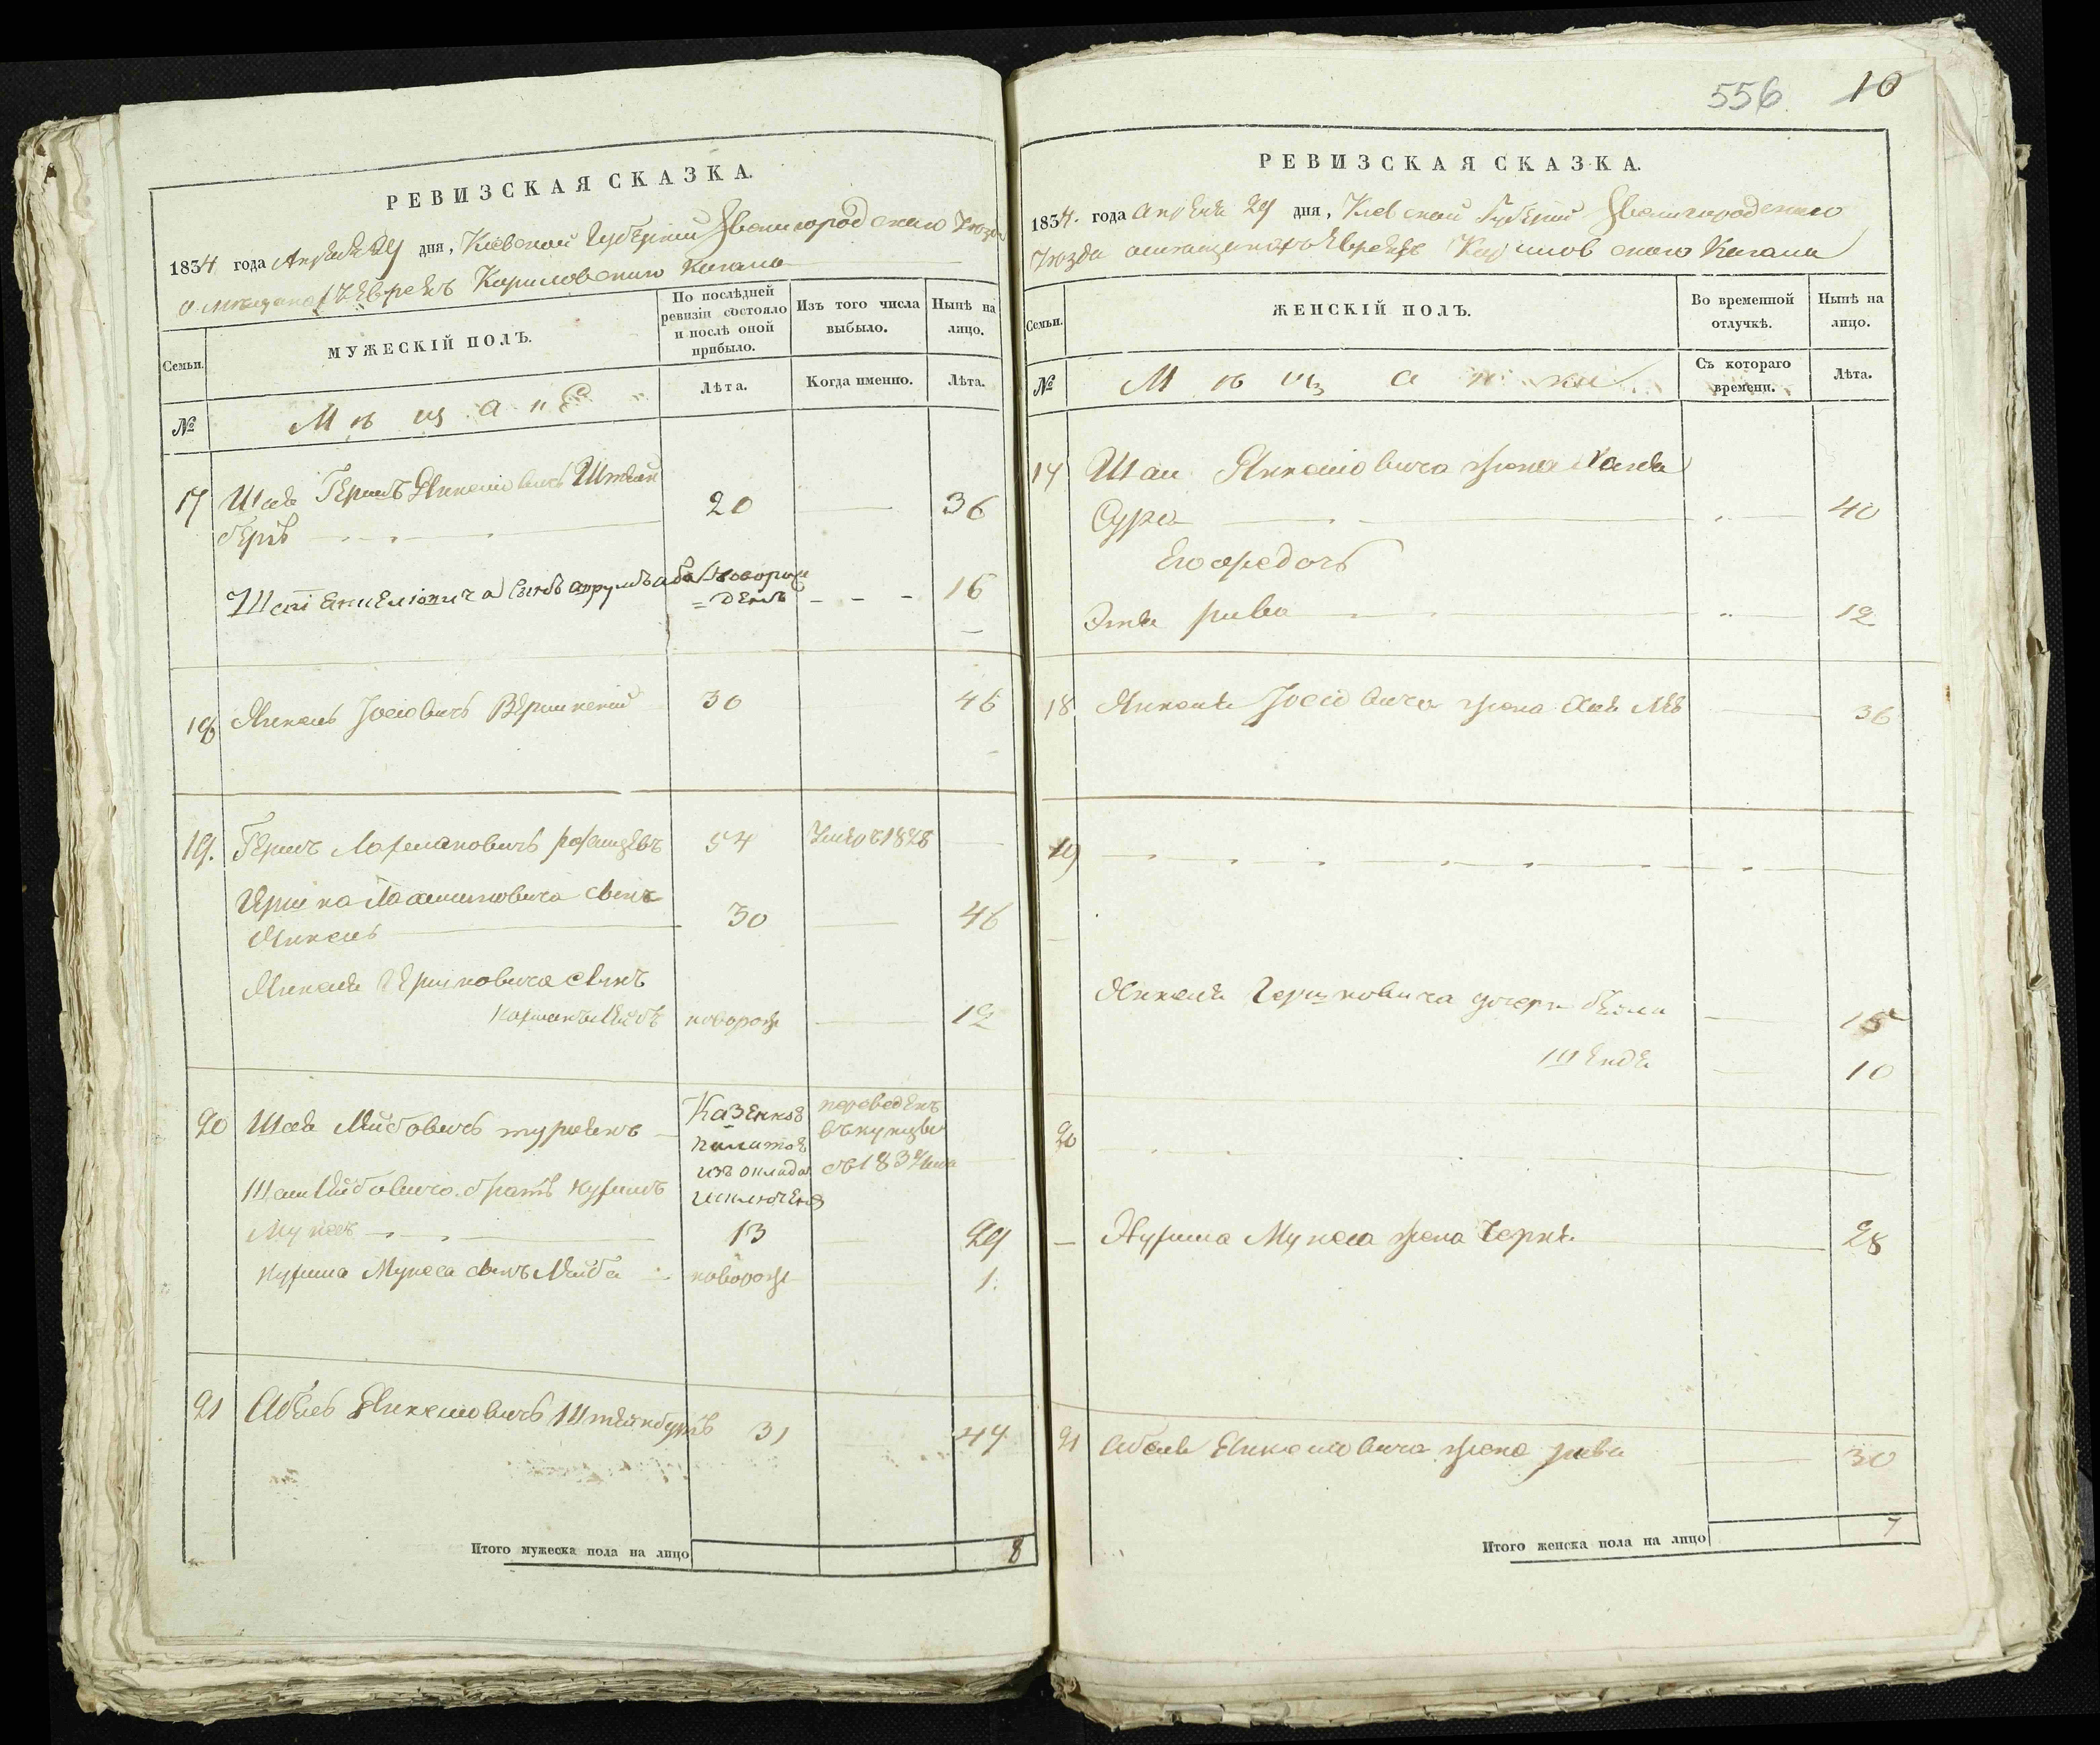 РЕВИЗСКАЯ СКАЗКА.
1834 года Апреля 29 дня, Киевской Губернии Звенигородскаго Уезда
о мещанахъ Евреяхъ Кириловскаго Кагала
Семьи.
МУЖЕСКІЙ ПОЛЪ.
По послѣдней ревизіи состояло и послѣ оной прибыло.
Изъ того числа выбыло.
Нынѣ на лицо.
№
Мѣщане
Лѣта.
Когда именно.
Лѣта.
17 Шая Гершъ Янкелiовичъ Штейн
бергъ 20 36
Шаи Енкелювича сынъ новорож
= денъ 16
18 Янкель Іосiовичъ 30 46
19. Гершъ 54 Умеръ 1828
Ершка сынъ
Янкель 30 46
Янкеля Ершковича сынъ
Лейбъ новорож 12
20 Шая Лейбовичъ Казенною переведенъ
палатою въ купцы
Шаи Лейбовича братъ Нухимъ изъ оклада съ 183
исключенъ
Мункесъ 13 29
Нухима Мункеса сынъ Лейба новорож 1.
21 Абель Янкелiовичъ Штейнбергъ 31 47
Итого мужеска пола на лицо 8
556 10
РЕВИЗСКАЯ СКАЗКА.
1834. года апреля 29 дня, Киевской Губернии Звенигородскаго
Уезда о мещанахъ Евреяхъ Кириловскаго Кагала
Семьи.
ЖЕНСКІЙ ПОЛЪ.
Во временной отлучкѣ.
Нынѣ на лицо.
№
Мѣщанки
Съ котораго времени.
Лѣта.
17 Шаи Янкелiовича жена Хая
Сура 40
Его дочь
рива 12
18 Янкеля Іосiовича жена 36
19
Янкеля Гершковича дочери бейла 15
Шейдя 10
20
Нухима Мункеса жена Черня 28
21 Абеля Янкелiовича жена рива 30
Итого женска пола на лицо 7